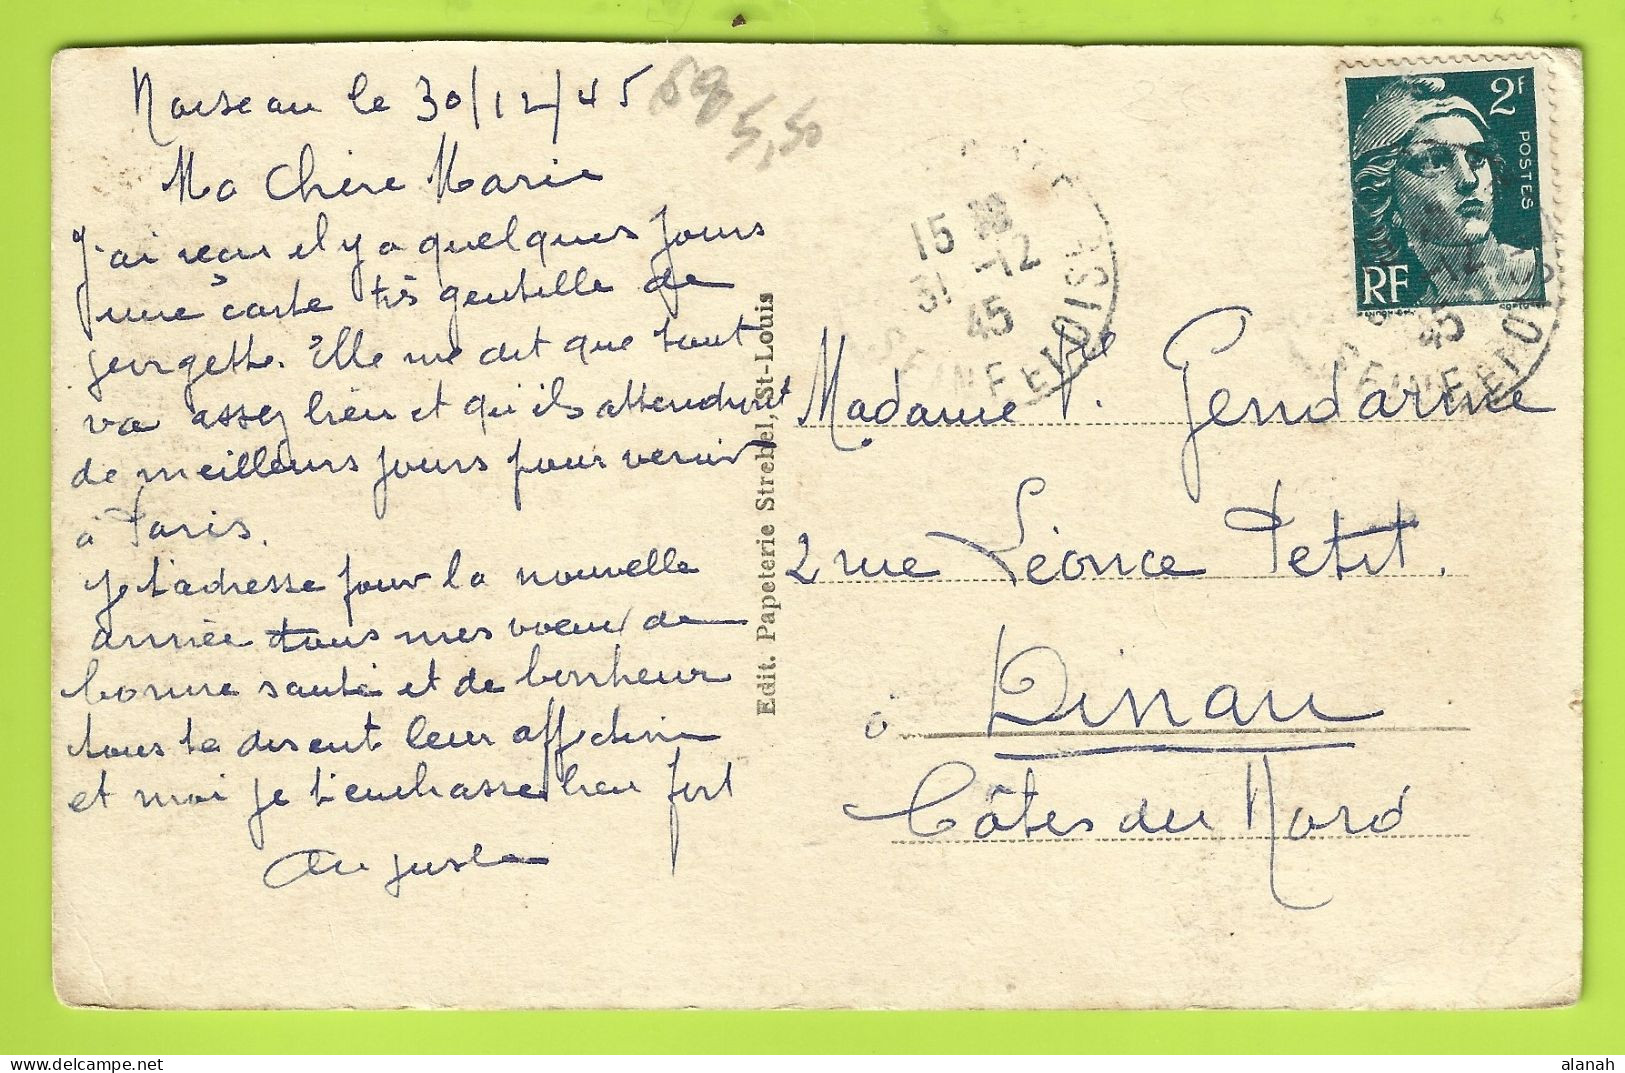 Noiseau le 30/12/45
68
5,50
Ma Chère Marie
J'ai reçu il y a quelques jours
une carte très gentille de
georgette. Elle me dit que tout
va assez bien et qu'ils attendront
de meilleurs jours pour venir
à Paris.
Je t'adresse pour la nouvelle
année tous mes voeux de
bonne santé et de bonheur
tous te disent leur affection
et moi je t'embrasse bien fort
Augusta
Edit. Papeterie Strebel, St-Louis
2F
POSTES
RF
15
31 -12
45
SEINE ET OISE
-12
45
SEINE ET OISE
Madame Vve Gendarme
2 rue Léonce Petit.
à Dinan
Côtes du Nord
alanah